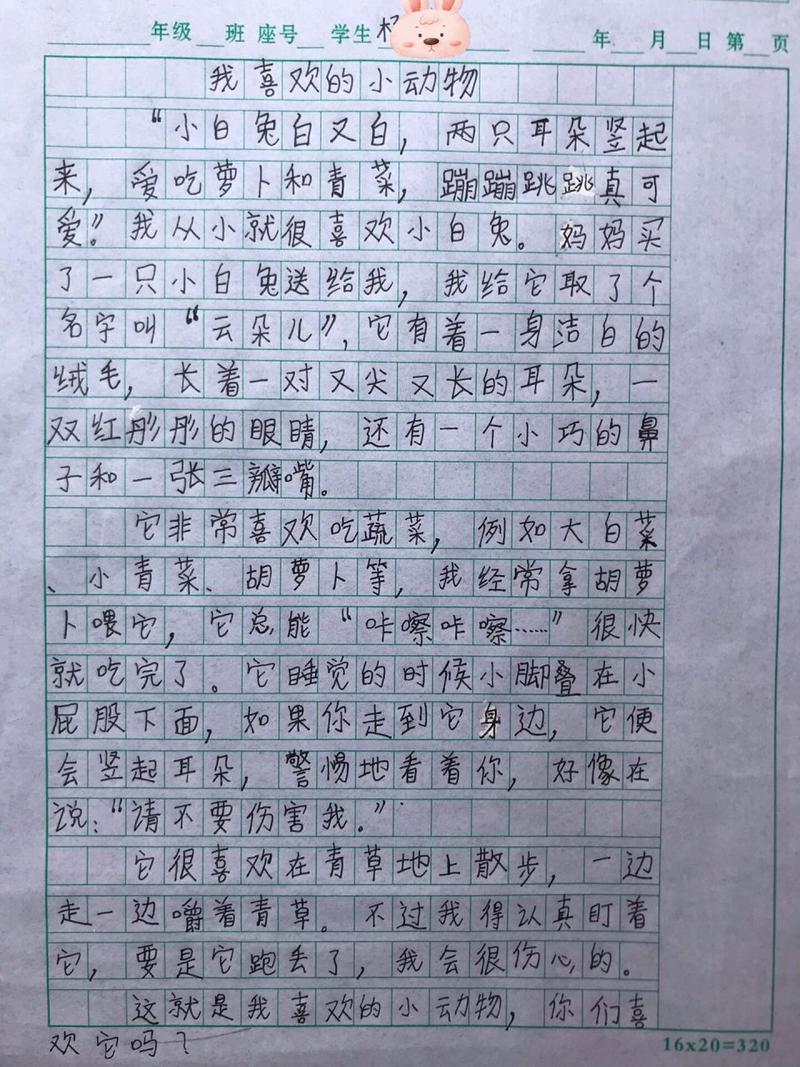 年级 班 座号 学生 年 月 日 第 页
我喜欢的小动物
“小白兔白又白，两只耳朵竖起
来，爱吃萝卜和青菜，蹦蹦跳跳真可
爱”。我从小就很喜欢小白兔。妈妈买
了一只小白兔送给我，我给它取了个
名字叫“云朵儿”，它有着一身洁白的
绒毛，长着一对又尖又长的耳朵，一
双红彤彤的眼睛，还有一个小巧的鼻
子和一张三瓣嘴。
它非常喜欢吃蔬菜，例如大白菜
、小青菜、胡萝卜等，我经常拿胡萝
卜喂它，它总能“咔嚓咔嚓……”很快
就吃完了。它睡觉的时候小脚叠在小
屁股下面，如果你走到它身边，它便
会竖起耳朵，警惕地看着你，好像在
说：“请不要伤害我。”
它很喜欢在青草地上散步，一边
走一边嚼着青草。不过我得认真盯着
它，要是它跑丢了，我会很伤心的。
这就是我喜欢的小动物，你们喜
欢它吗？
16x20=320